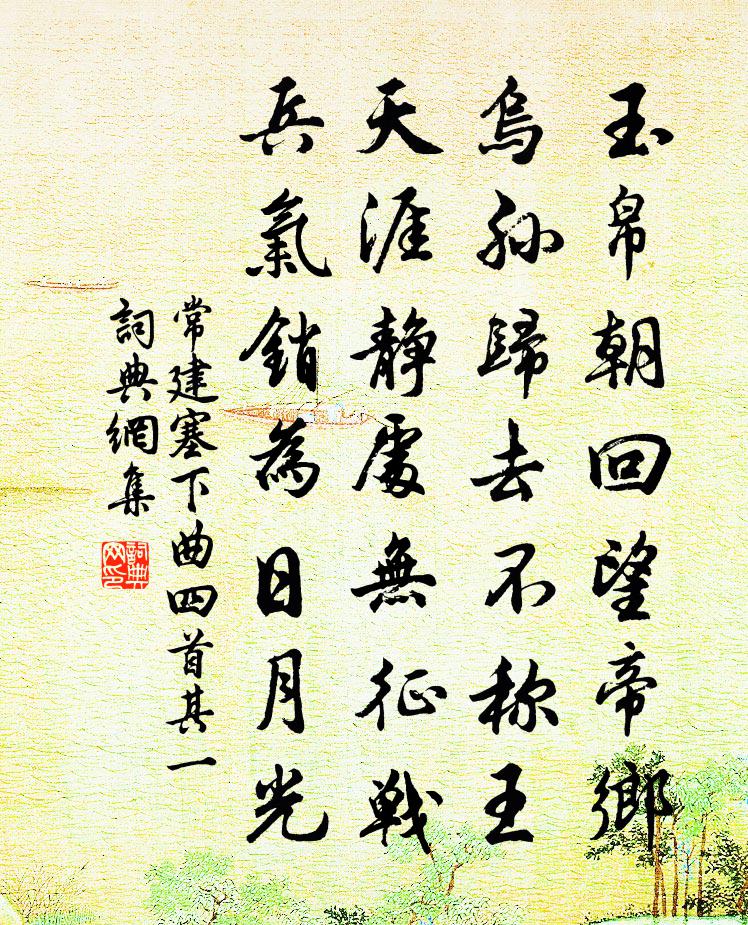 玉帛朝回望帝鄉
烏孫歸去不称王
天涯静處無征戰
兵氣銷為日月光
常建塞下曲四首其一
詞典網集
詞典
网印